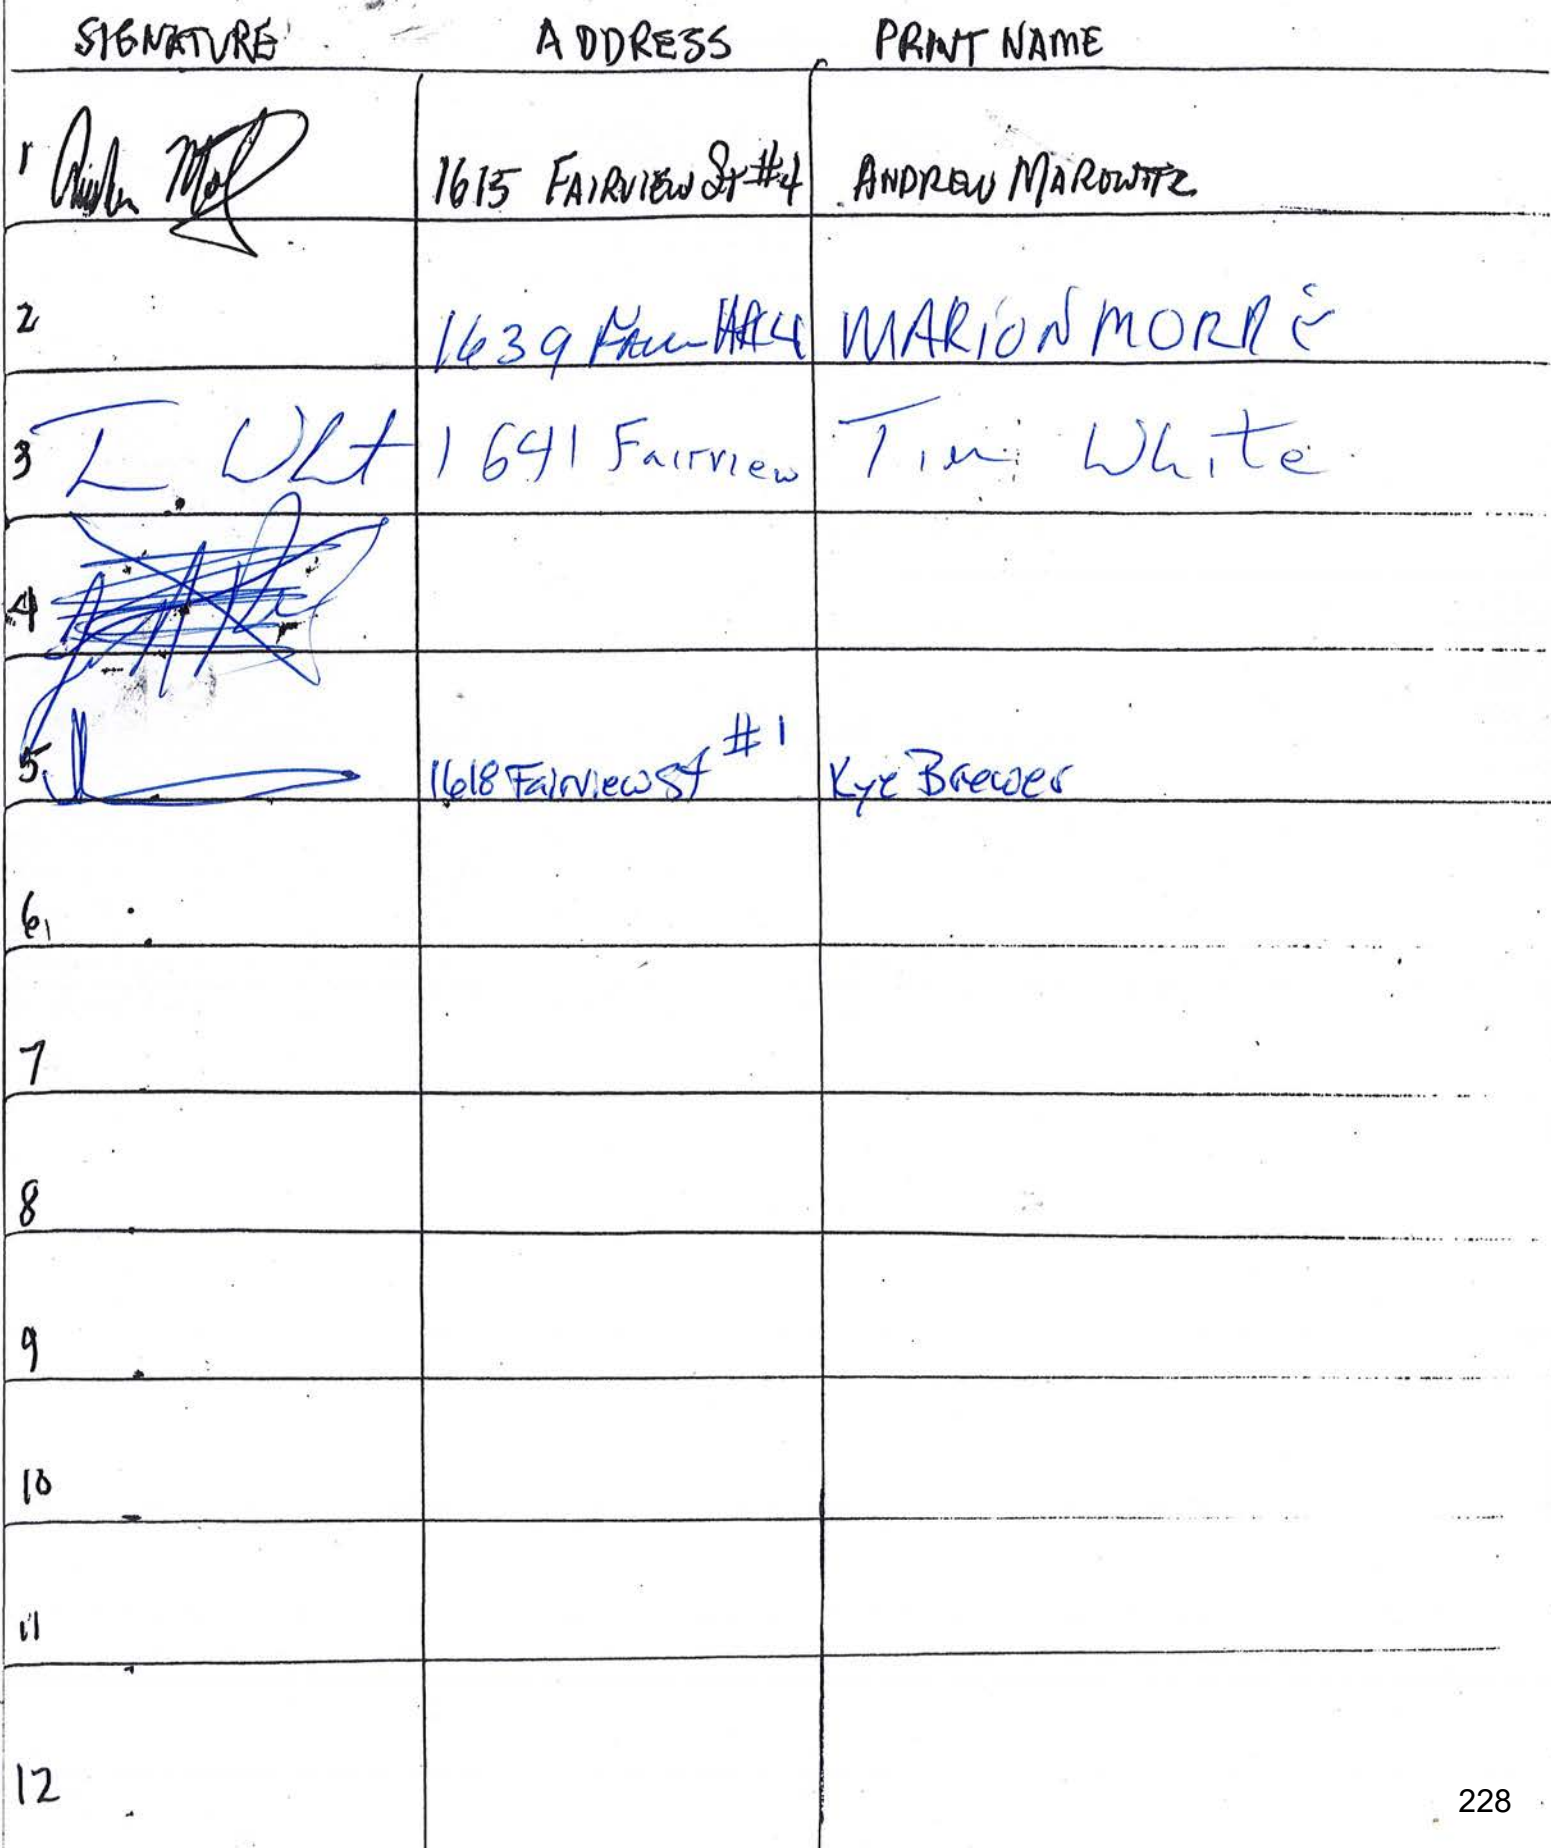 SIGNATURE ADDRESS PRINT NAME
1 1615 FAIRVIEW St #4 ANDREW MAROWITZ
2 1639 #4 MARION MORRÉ
3 T. Wht 1641 Fairview Tim White
4
5. 1618 Fairview St #1 Kye Brewer
6,
7
8
9
10
11
12
228